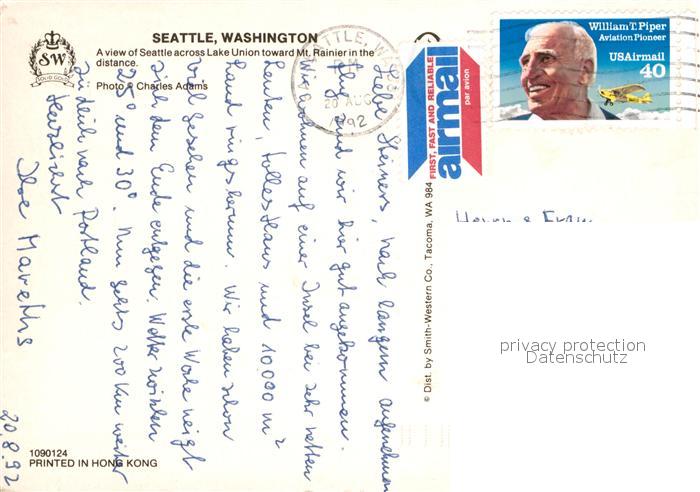 SEATTLE, WASHINGTON
A view of Seattle across Lake Union toward Mt. Rainier in the
distance.
Photo © Charles Adams
SW
SOLID GOLD
SEATTLE, WA
20 AUG
1992
FIRST, FAST AND RELIABLE
airmail
par avion
William T. Piper
Aviation Pioneer
USAirmail
40
Liebe Steiners, nach langem angenehmen
Flug sind wir hier gut angekommen.
Wir wohnen auf einer Insel bei sehr netten
Leuten, tolles Haus und 10000 m²
Land rings herum. Wir haben schon
viel gesehen und die erste Woche neigt
sich dem Ende entgegen. Wetter zwischen
25° und 30°. Nun gehts 200 km weiter
südlich nach Portland.
Herzlichst
Ihre Mareths
20.8.92
Herrn & Frau
© Dist. by Smith-Western Co., Tacoma, WA 984
privacy protection
Datenschutz
1090124
PRINTED IN HONG KONG